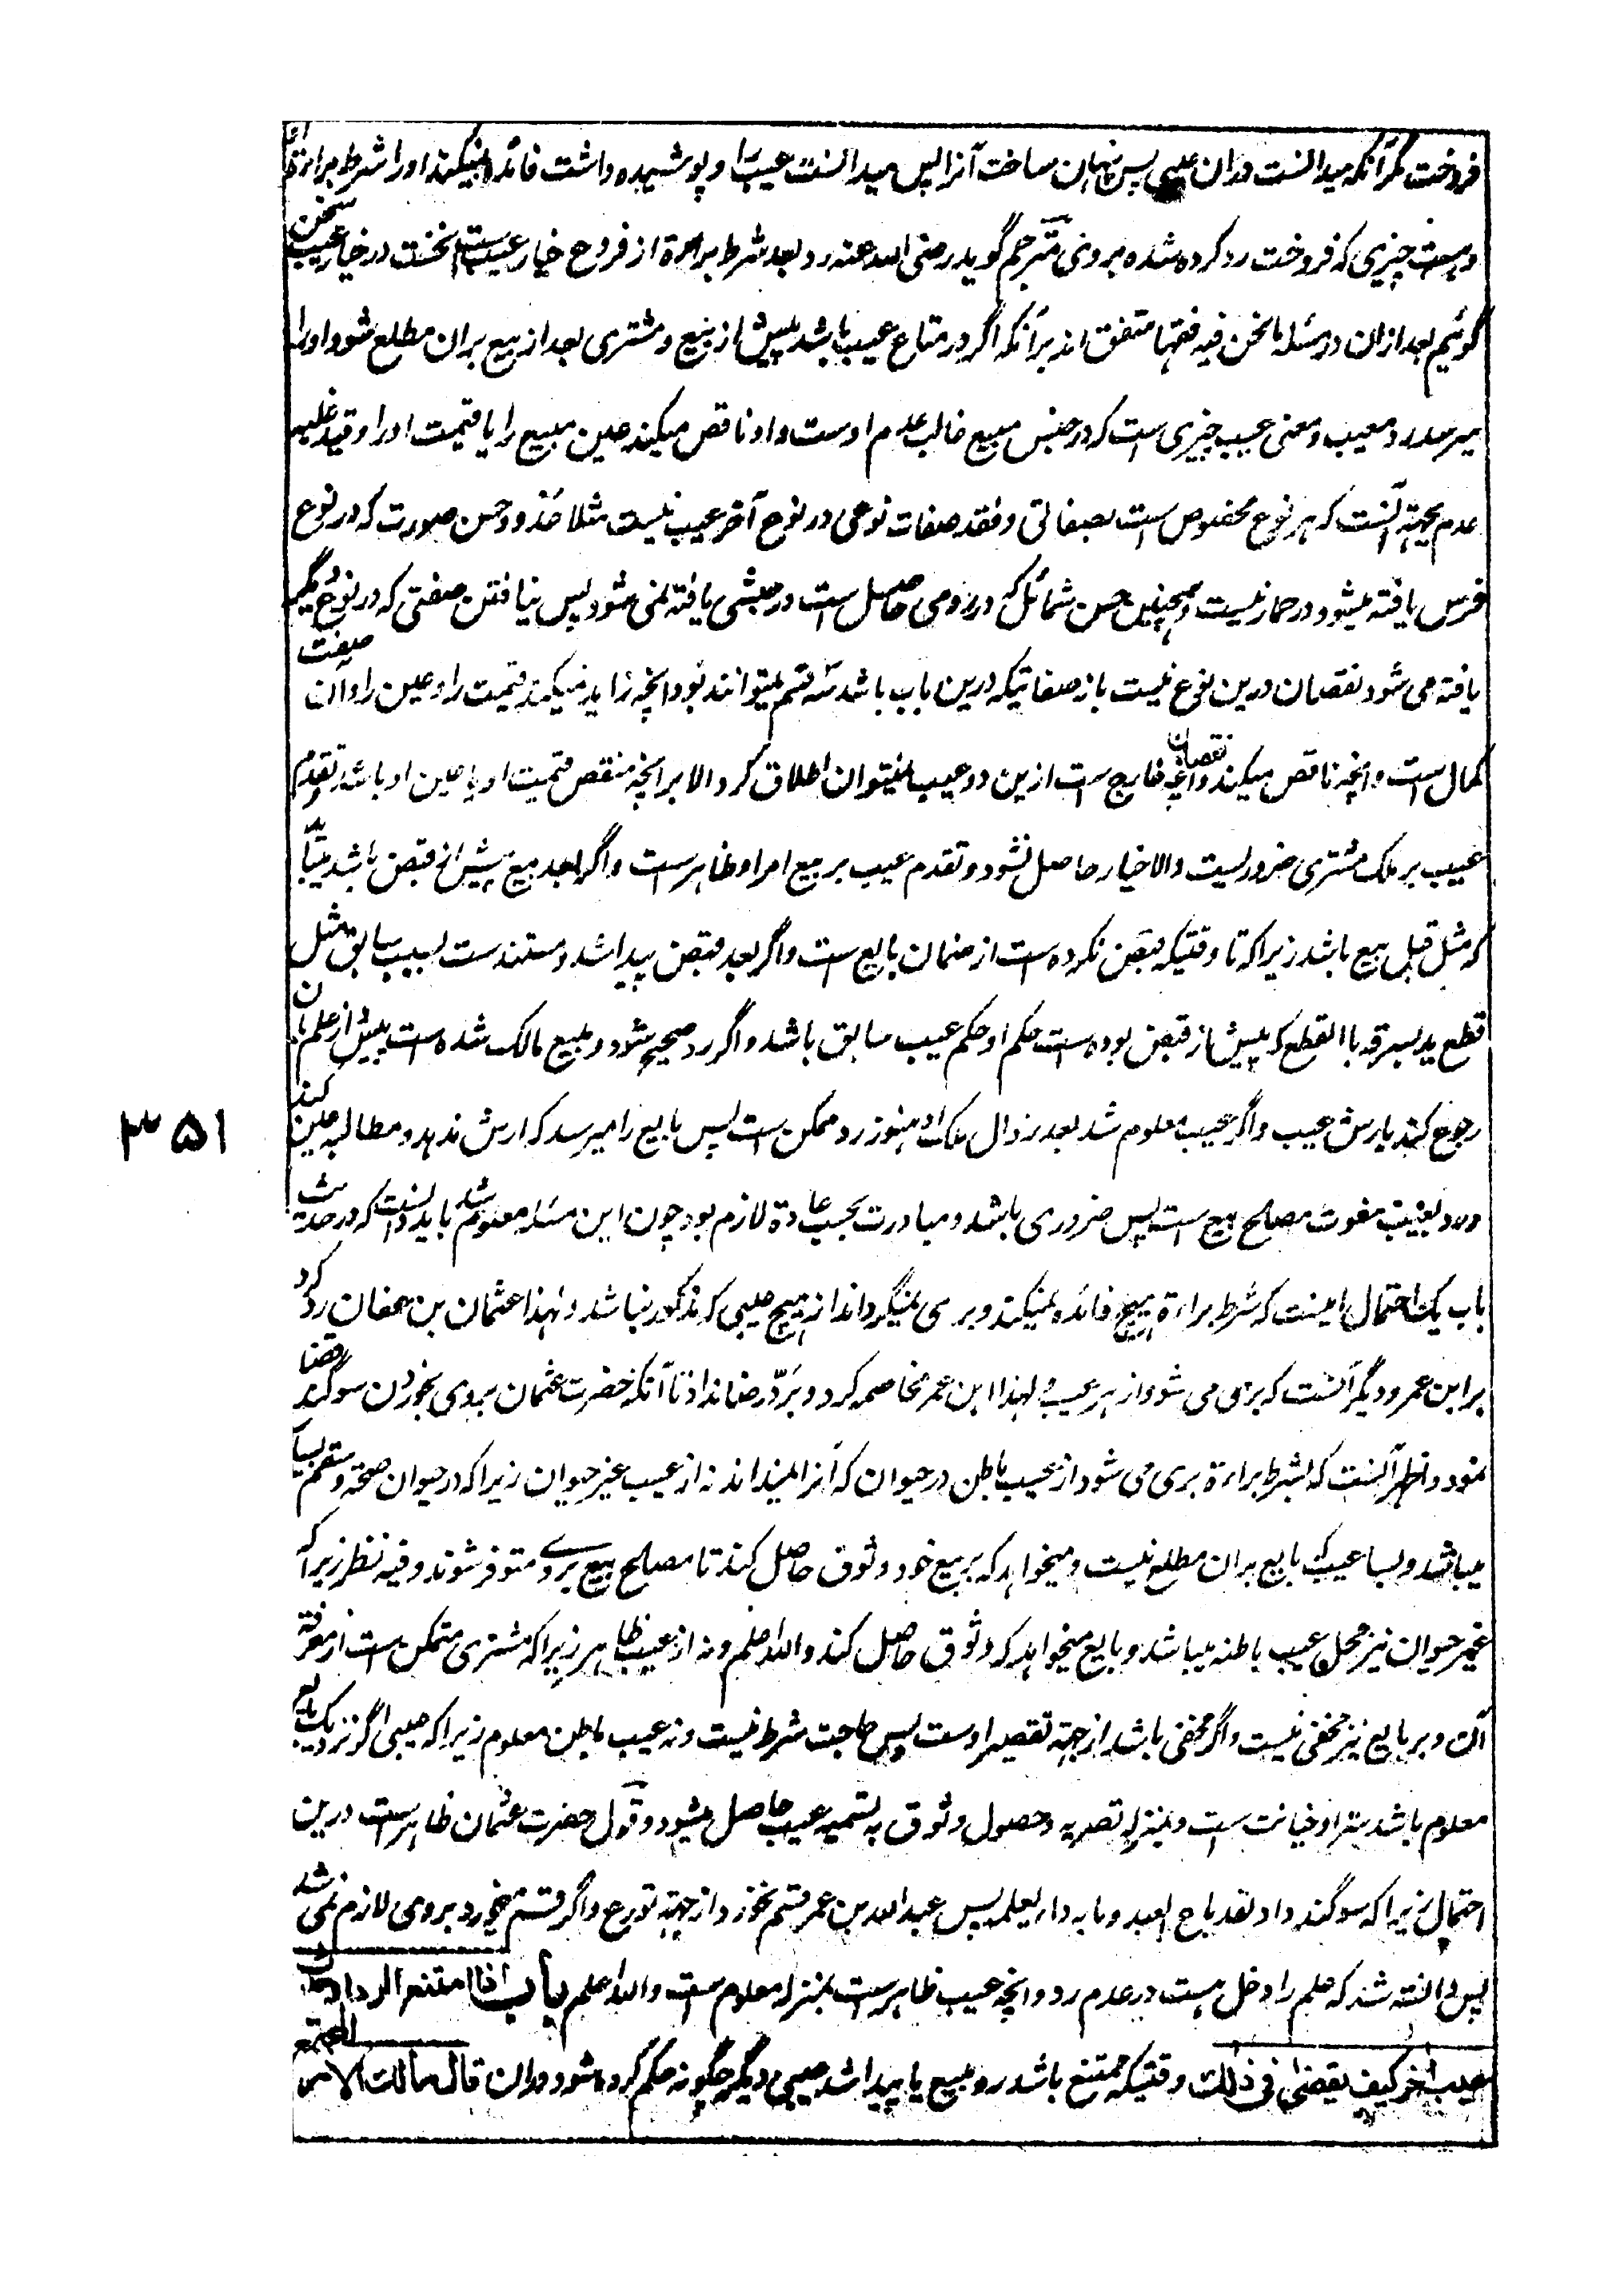 فروخت مگر آنکه میدانست دران عیبی پس پنهان ساخت آنرا پس میدانست عیب را و پوشیده داشت فائده نمیکند او را شرط براءة
و هست چیزی که فروخت رد کرده شده بروی مترجم گوید رضی الله عنه رد بعد شرط براءة از فروع خیار عیب است نخست در خیار عیب سخن
گوئیم بعد ازان در مسئله ما نحن فیه فقها متفق اند برآنکه اگر در متاع عیب باشد پیش از بیع و مشتری بعد از بیع بران مطلع شود او را
میرسد رد معیب و معنی عیب چیزی است که در جنس مبیع غالب عدم اوست و او ناقص میکند عین مبیع را یا قیمت او را و قید غلبه
عدم بجهة آنست که هر نوع مخصوص است بصفاتی و فقد صفات نوعی در نوع آخر عیب نیست مثلا حسن صورت که در نوع
فرس یافته میشود در حمار نیست و همچنین حسن شمائل که در رومی حاصل است در حبشی یافته نمی شود پس نیافتن صفتی که در نوع دیگر
یافته می شود نقصان درین نوع نیست باز صفاتیکه درین باب باشد سه قسم میتوانند بود آنچه زاید میکند قیمت را و عین را و آن صفت
کمال است و آنچه ناقص میکند و آن نقصان و آنچه خارج است ازین دو عیب نمیتوان اطلاق کرد الا برآنچه منقص قیمت او یا عین او باشد و تقدم
عیب بر ملک مشتری ضروریست والا خیار حاصل نشود و تقدم عیب بر بیع امر او ظاهر است و اگر بعد بیع پیش از قبض باشد میباید
که مثل قبل بیع باشد زیرا که تا وقتیکه قبض نکرده است از ضمان بایع است و اگر بعد قبض پیدا شد و مستند است بسبب سابق مثل
قطع ید بسرقه یا القطع که پیش از قبض بوده است حکم او حکم عیب سابق باشد و اگر رد صحیح شود و مبیع هالک شده است پیش از علم بآن
رجوع کند بارش عیب و اگر عیب معلوم شد بعد زوال ملک او هنوز رد ممکن است پس بایع را میرسد که ارش ندهد و مطالبه عین کند
و رد بعیب مفوت مصلح بیع است پس ضروری باشد و مبادرت بحسب عادة لازم بود چون این مسئله معلوم شد باید دانست که در حدیث
باب یک احتمال اینست که شرط براءة هیچ فائده نمیکند و بری نمیگرداند از هیچ عیبی که مذکور نباشد و لهذا عثمان بن عفان رد کرد
بر ابن عمر و دیگر آنست که بری می شود از هر عیب و لهذا ابن عمر مخاصمه کرد و برد رضا نداد تا آنکه حضرت عثمان بروی بخوردن سوگند قضا
نمود و اظهر آنست که بشرط براءة بری می شود از عیب باطن در حیوان که آنرا نمیداند نه از عیب غیر حیوان زیرا که در حیوان صحة و سقم بسیار
میباشد و بسا عیب که بایع بران مطلع نیست و میخواهد که بر بیع خود وثوق حاصل کند تا مصلح بیع بروے متوفر شوند و فیه نظر زیرا که
غیر حیوان نیز محل عیب باطنه میباشد و بایع میخواهد که وثوق حاصل کند والله اعلم و نه از عیب ظاهر زیرا که مشتری متمکن است از معرفة
آن و بر بایع نیز مخفی نیست و اگر مخفی باشد از جهة تقصیر اوست پس حاجت شرط نیست و نه عیب باطن معلوم زیرا که عیبی اگر نزدیک بایع
معلوم باشد ستر او خیانت است و بمنزله تصریه و حصول وثوق به تسمیه عیب حاصل میشود و قول حضرت عثمان ظاهر است درین
احتمال زیرا که سوگند داد لقد باع العبد و ما به داء یعلمه پس عبدالله بن عمر قسم نخورد از جهة تورع و اگر قسم میخورد بروی لازم نمی شد
پس دانسته شد که علم را دخل هست در عدم رد و آنچه عیب ظاهر است بمنزله معلوم است والله اعلم باب اذا امتنع الرد او حدث
عیب آخر کیف یقضی فی ذلک وقتیکه ممتنع باشد رد مبیع یا پیدا شد عیبی دیگر چگونه حکم کرده شود دران قال مالک الامر المجتمع
۳۵۱